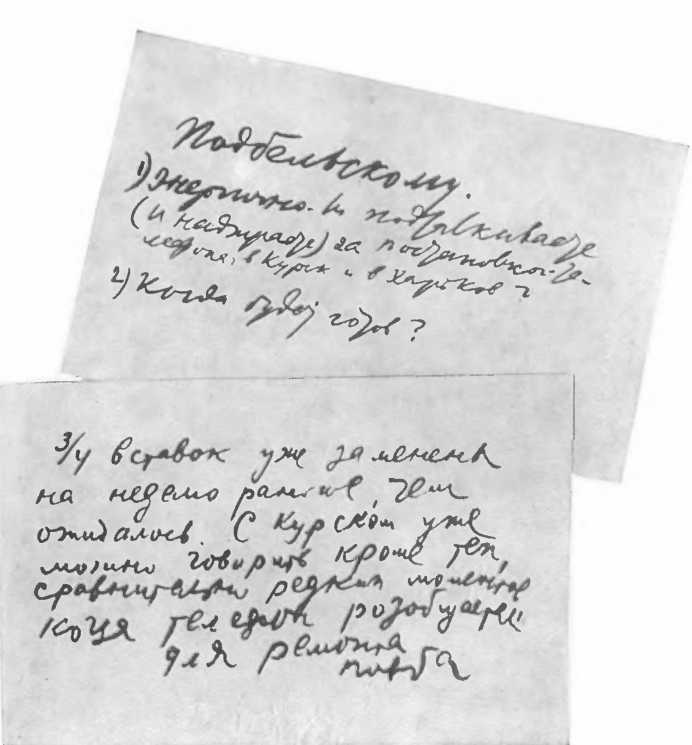 Подбельскому.
1) Энергично ли подталкиваете
(и надзираете) за постановкой те-
лефона, в Курск и в Харьков?
2) Когда будет готов?
3/4 вставок уже заменены
на неделю раньше, чем
ожидалось. С Курском уже
можно говорить кроме тех,
сравнительно редких моментов
когда телефон разобщается
для ремонта